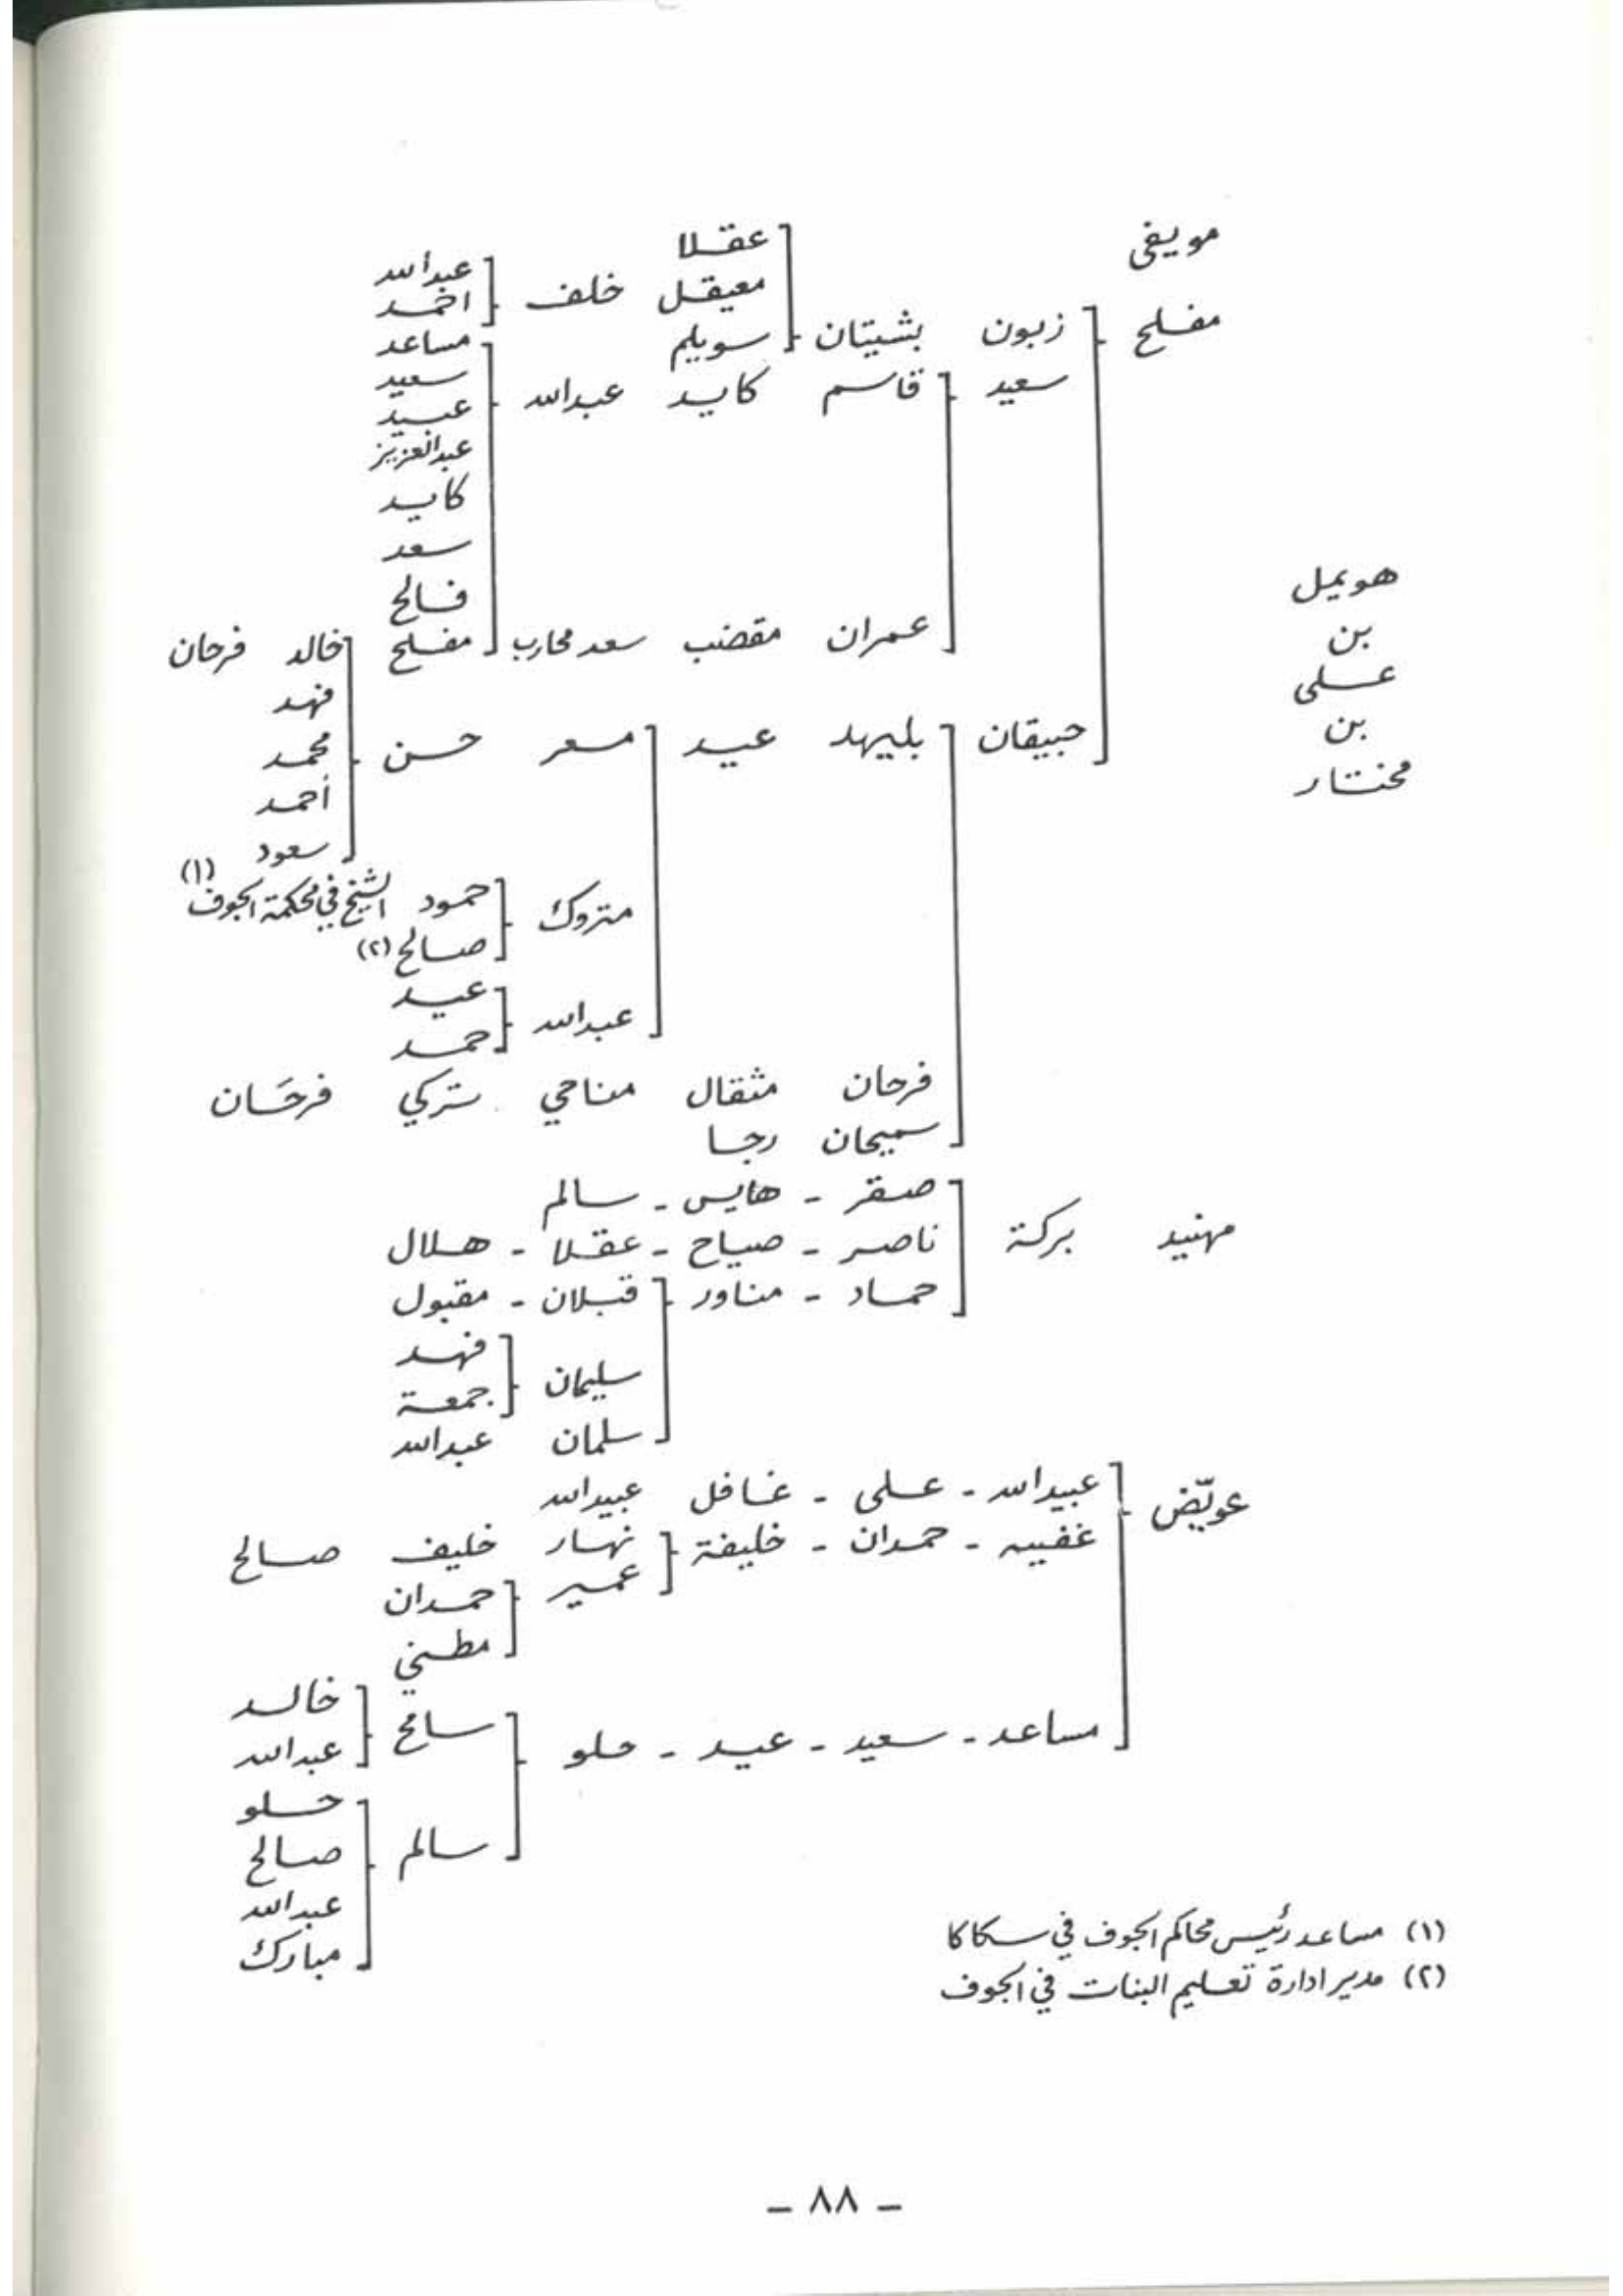 مويفى
عقلا
معيقل خلف عبدالله
احمد
مفلح زبون بشيتان سويلم
سعيد قاسم كايد عبدالله مساعد
سعيد
عبيد
عبدالعزيز
كايد
سعد
فالح
عمران مقضب سعد محارب مفلح خالد فرحان
فهد
هويمل
بن
على
بن
مختار
جبيقان بليهد عيد مسعر حسن محمد
أحمد
سعود
متروك حمود الشيخ في محكمة الجوف (١)
صالح (٢)
عبدالله عيد
حمد
فرحان مثقال مناحي تركي فرحَان
سميحان رجا
صقر - هايس - سالم
مهنيد بركة ناصر - صياح - عقلا - هلال
حماد - مناور قبلان - مقبول
سليمان فهد
جمعة
سلمان عبدالله
عويّض عبيدالله - على - غافل عبيدالله
حمدان - خليفة نهار خليف صالح
عمير حمدان
مطني
مساعد - سعيد - عيد - حلو سامح خالد
عبدالله
سالم حلو
صالح
عبدالله
مبارك
(١) مساعد رئيس محاكم الجوف في سكاكا
(٢) مدير ادارة تعليم البنات في الجوف
- ٨٨ -